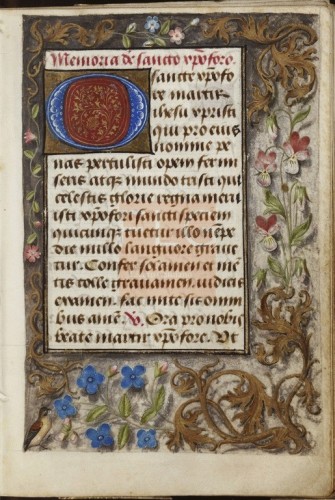 Memoria de sancto xpoforo.
Sancte xpofo
re martir
ihesu xpristi
qui pro eius
nomine pe
nas pertulisti opem ferm
seris atq; mundo tristi qui
celestis glorie regna meru
isti xpofori sancti speciem
quicunq; tuetur illo nempe
die nullo languore grave
tur. Confer solamen et men
tis tolle gravamen iudicis
examen. fac mite sis omni
bus amen. V. Ora pro nobis
beate martir xpofore. Vt